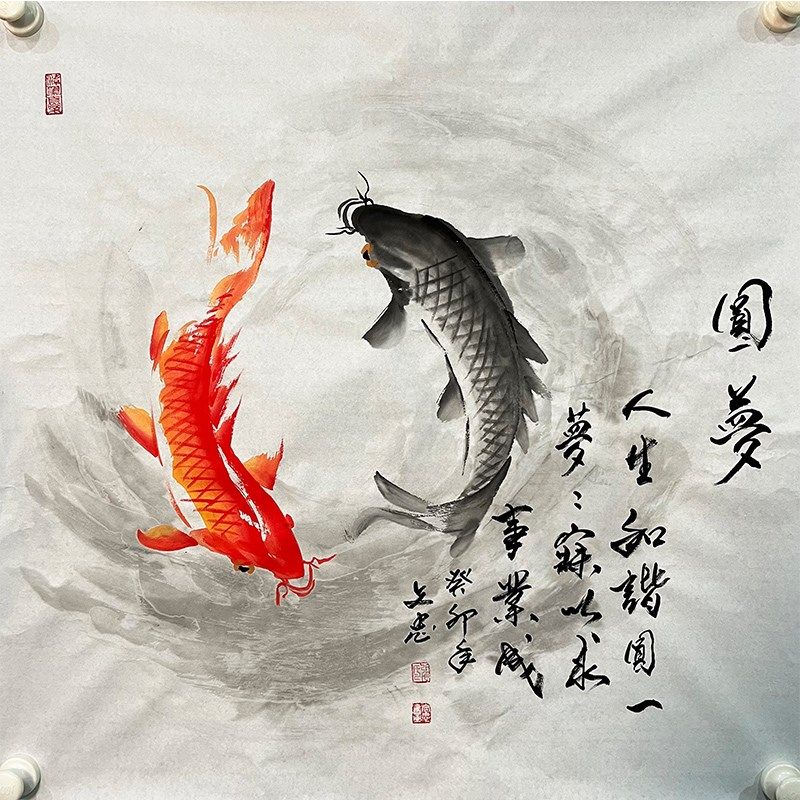 圓夢
人生和諧圓一
夢〻寐以求
事業成
癸卯年